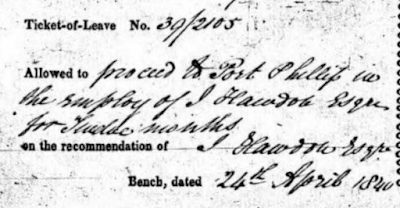 Ticket-of-Leave No. 39/2105
Allowed to proceed to Port Phillip in
the employ of J Hawdon Esqre
for Twelve months
on the recommendation of J Hawdon Esqre
Bench, dated 24th April 1840